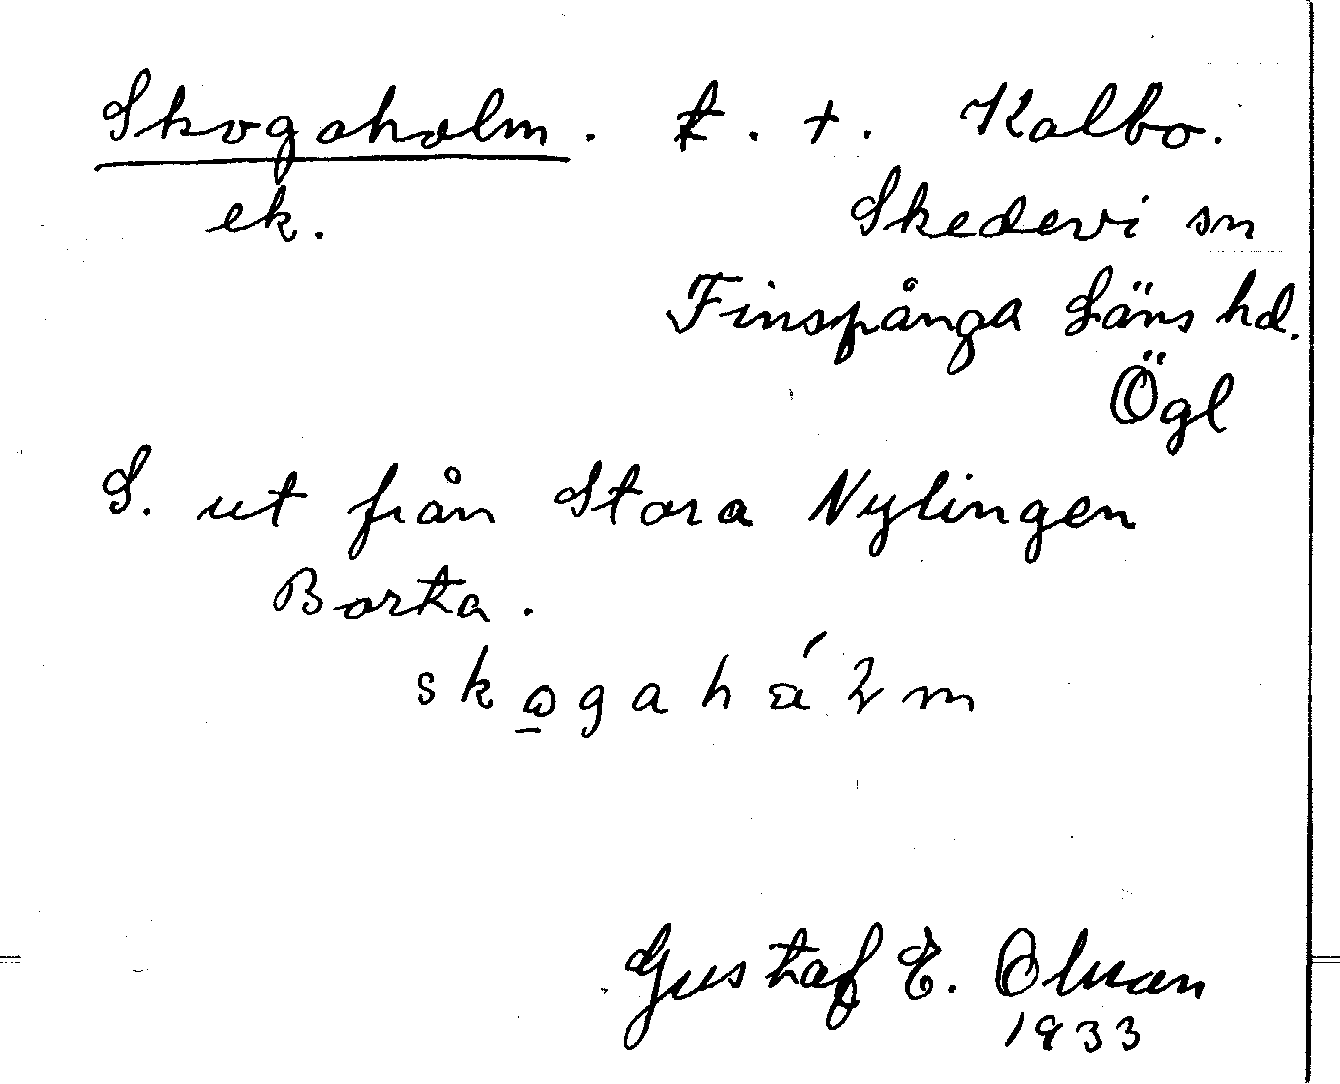 Skogaholm. t. +. Kalbo.
ek. Skedevi sn
Finspånga Läns hd.
Ögl
S. ut från Stora Nylingen
Borta.
Gustaf E. Olsson
1933